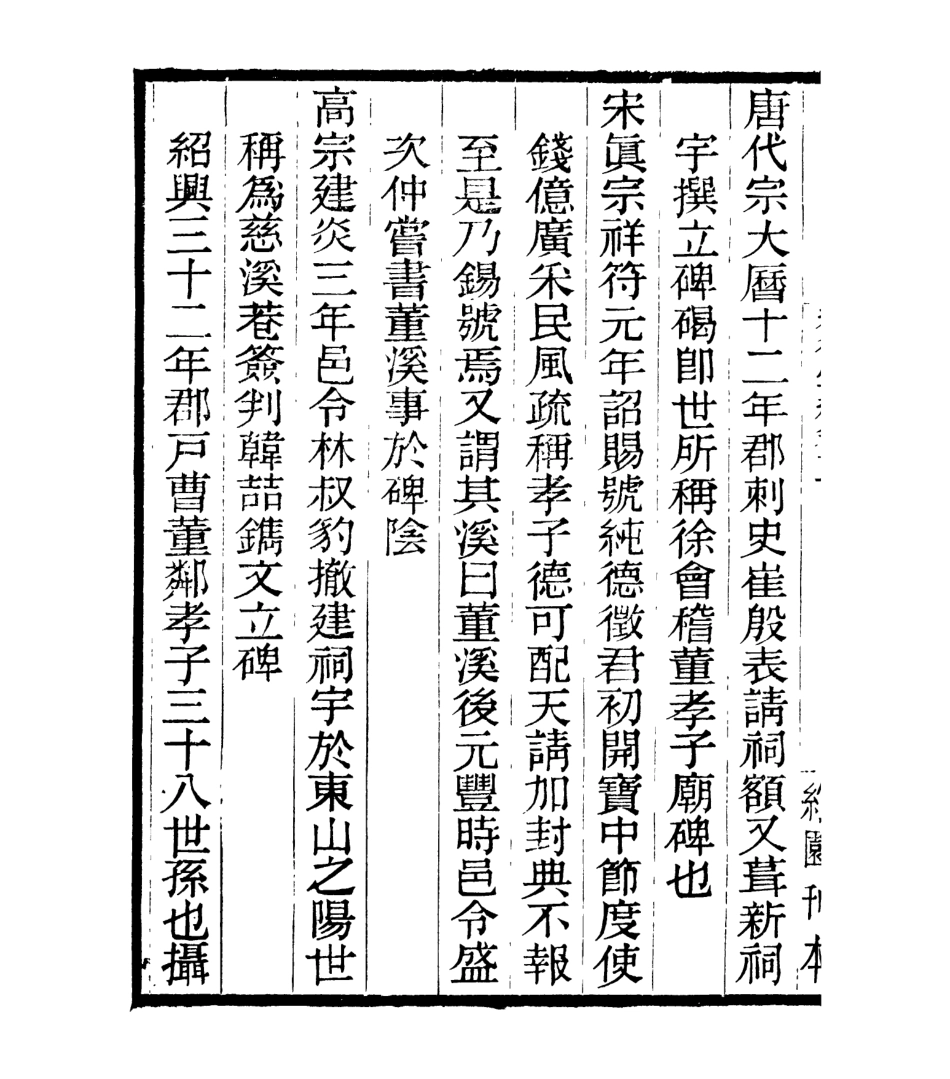 唐代宗大曆十二年郡刺史崔殷表請祠額又葺新祠
宇撰立碑碣卽世所稱徐會稽董孝子廟碑也
宋眞宗祥符元年詔賜號純德徵君初開寶中節度使
錢億廣釆民風疏稱孝子德可配天請加封典不報
至是乃錫號焉又謂其溪曰董溪後元豐時邑令盛
次仲嘗書董溪事於碑陰
高宗建炎三年邑令林叔豹撤建祠宇於東山之陽世
稱為慈溪巷簽判韓喆鐫文立碑
紹興三十二年郡戸曹董鄰孝子三十八世孫也攝
園刊本